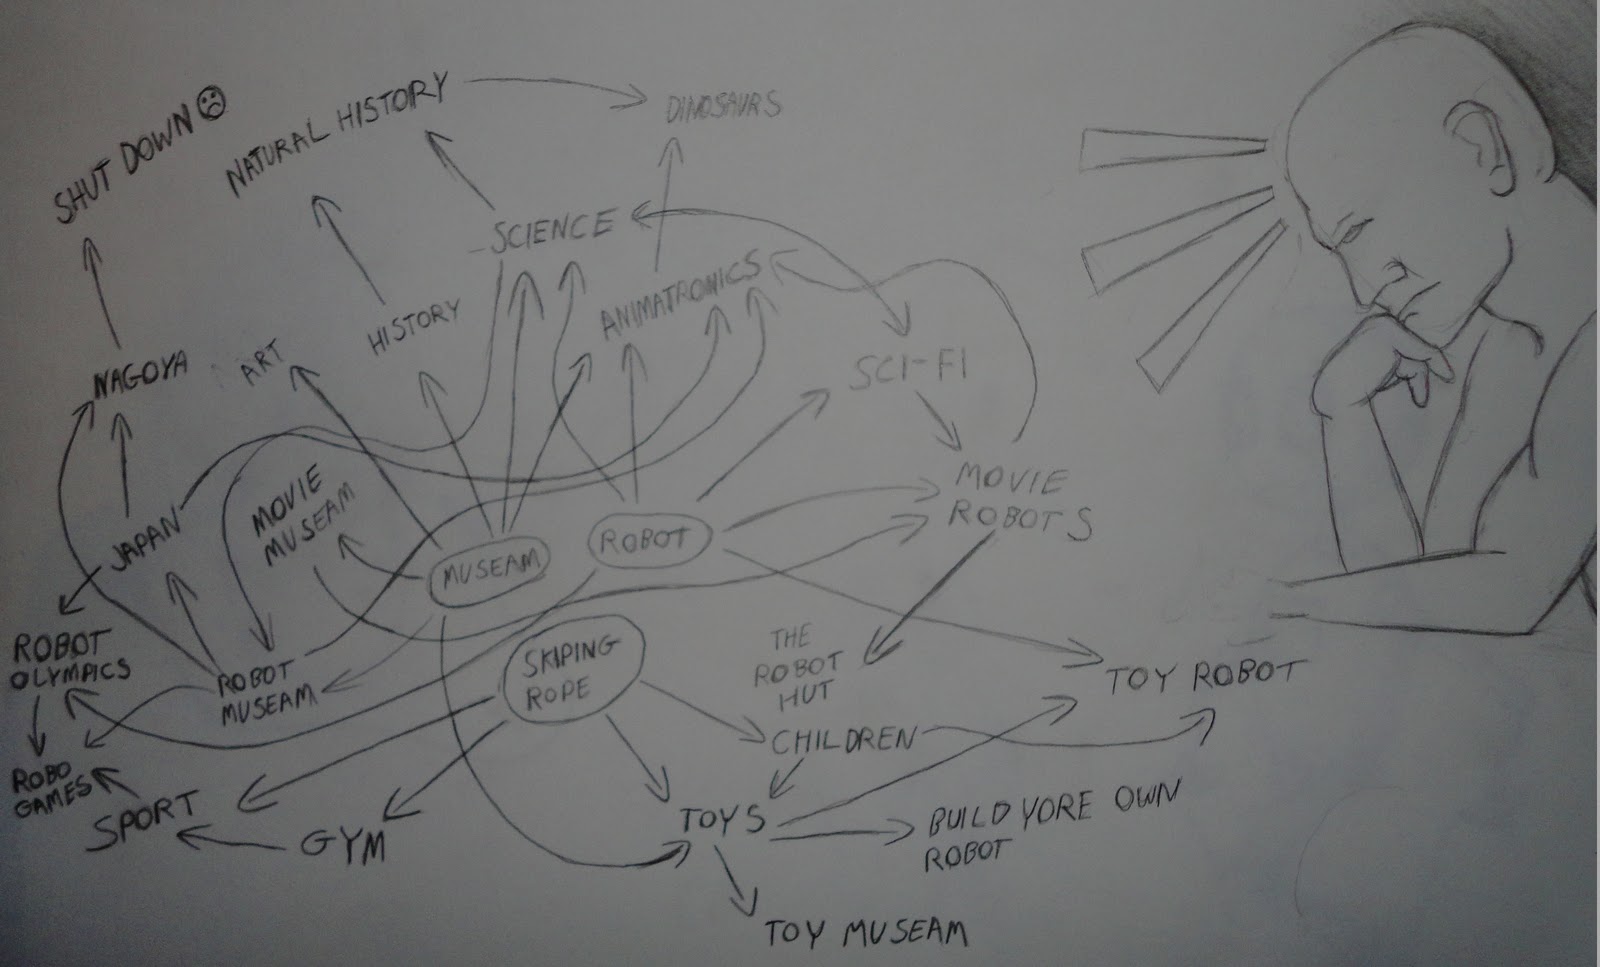 SHUT DOWN
NATURAL HISTORY
DINOSAURS
SCIENCE
ANIMATRONICS
HISTORY
ART
NAGOYA
SCI-FI
MOVIE
ROBOTS
MOVIE
MUSEAM
JAPAN
MUSEAM
ROBOT
ROBOT
OLYMPICS
ROBOT
MUSEAM
SKIPING
ROPE
THE
ROBOT
HUT
TOY ROBOT
CHILDREN
ROBO
GAMES
SPORT
GYM
TOYS
BUILD YORE OWN
ROBOT
TOY MUSEAM